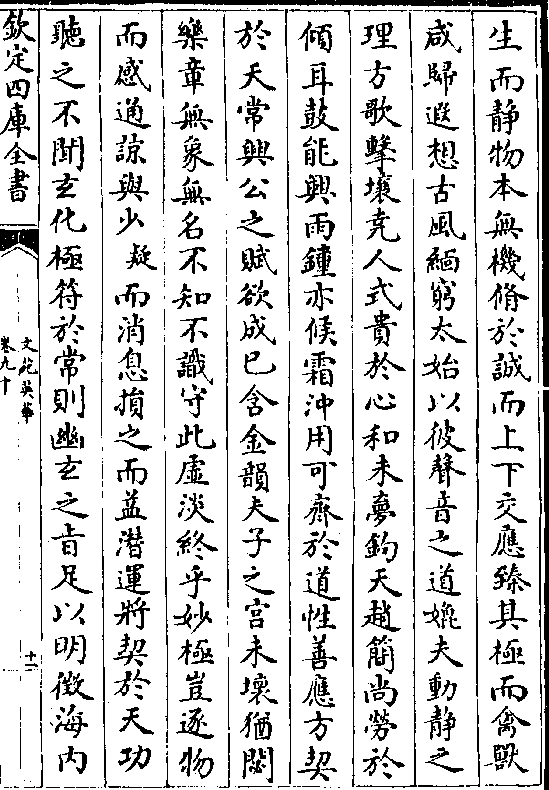 生而静物本無機脩於誠而上下交應臻其極而禽獸
咸歸遐想古風緬窮太始以彼聲音之道媲夫動静之
理方歌擊壤尭人式貴於心和未夢鈞天趙簡尚勞於
傾耳鼓能興雨鐘亦候霜沖用可齊於道性善應方契
於天常興公之賦欲成已含金韻夫子之宫未壞猶閟
樂章無象無名不知不識守此虚淡終乎妙極豈逐物
而感通諒與少疑而消息損之而益潛運將契於天功
聽之不聞玄化極符於常則幽玄之旨足以明徴海内
欽定四庫全書
文苑英華
卷九十
十二